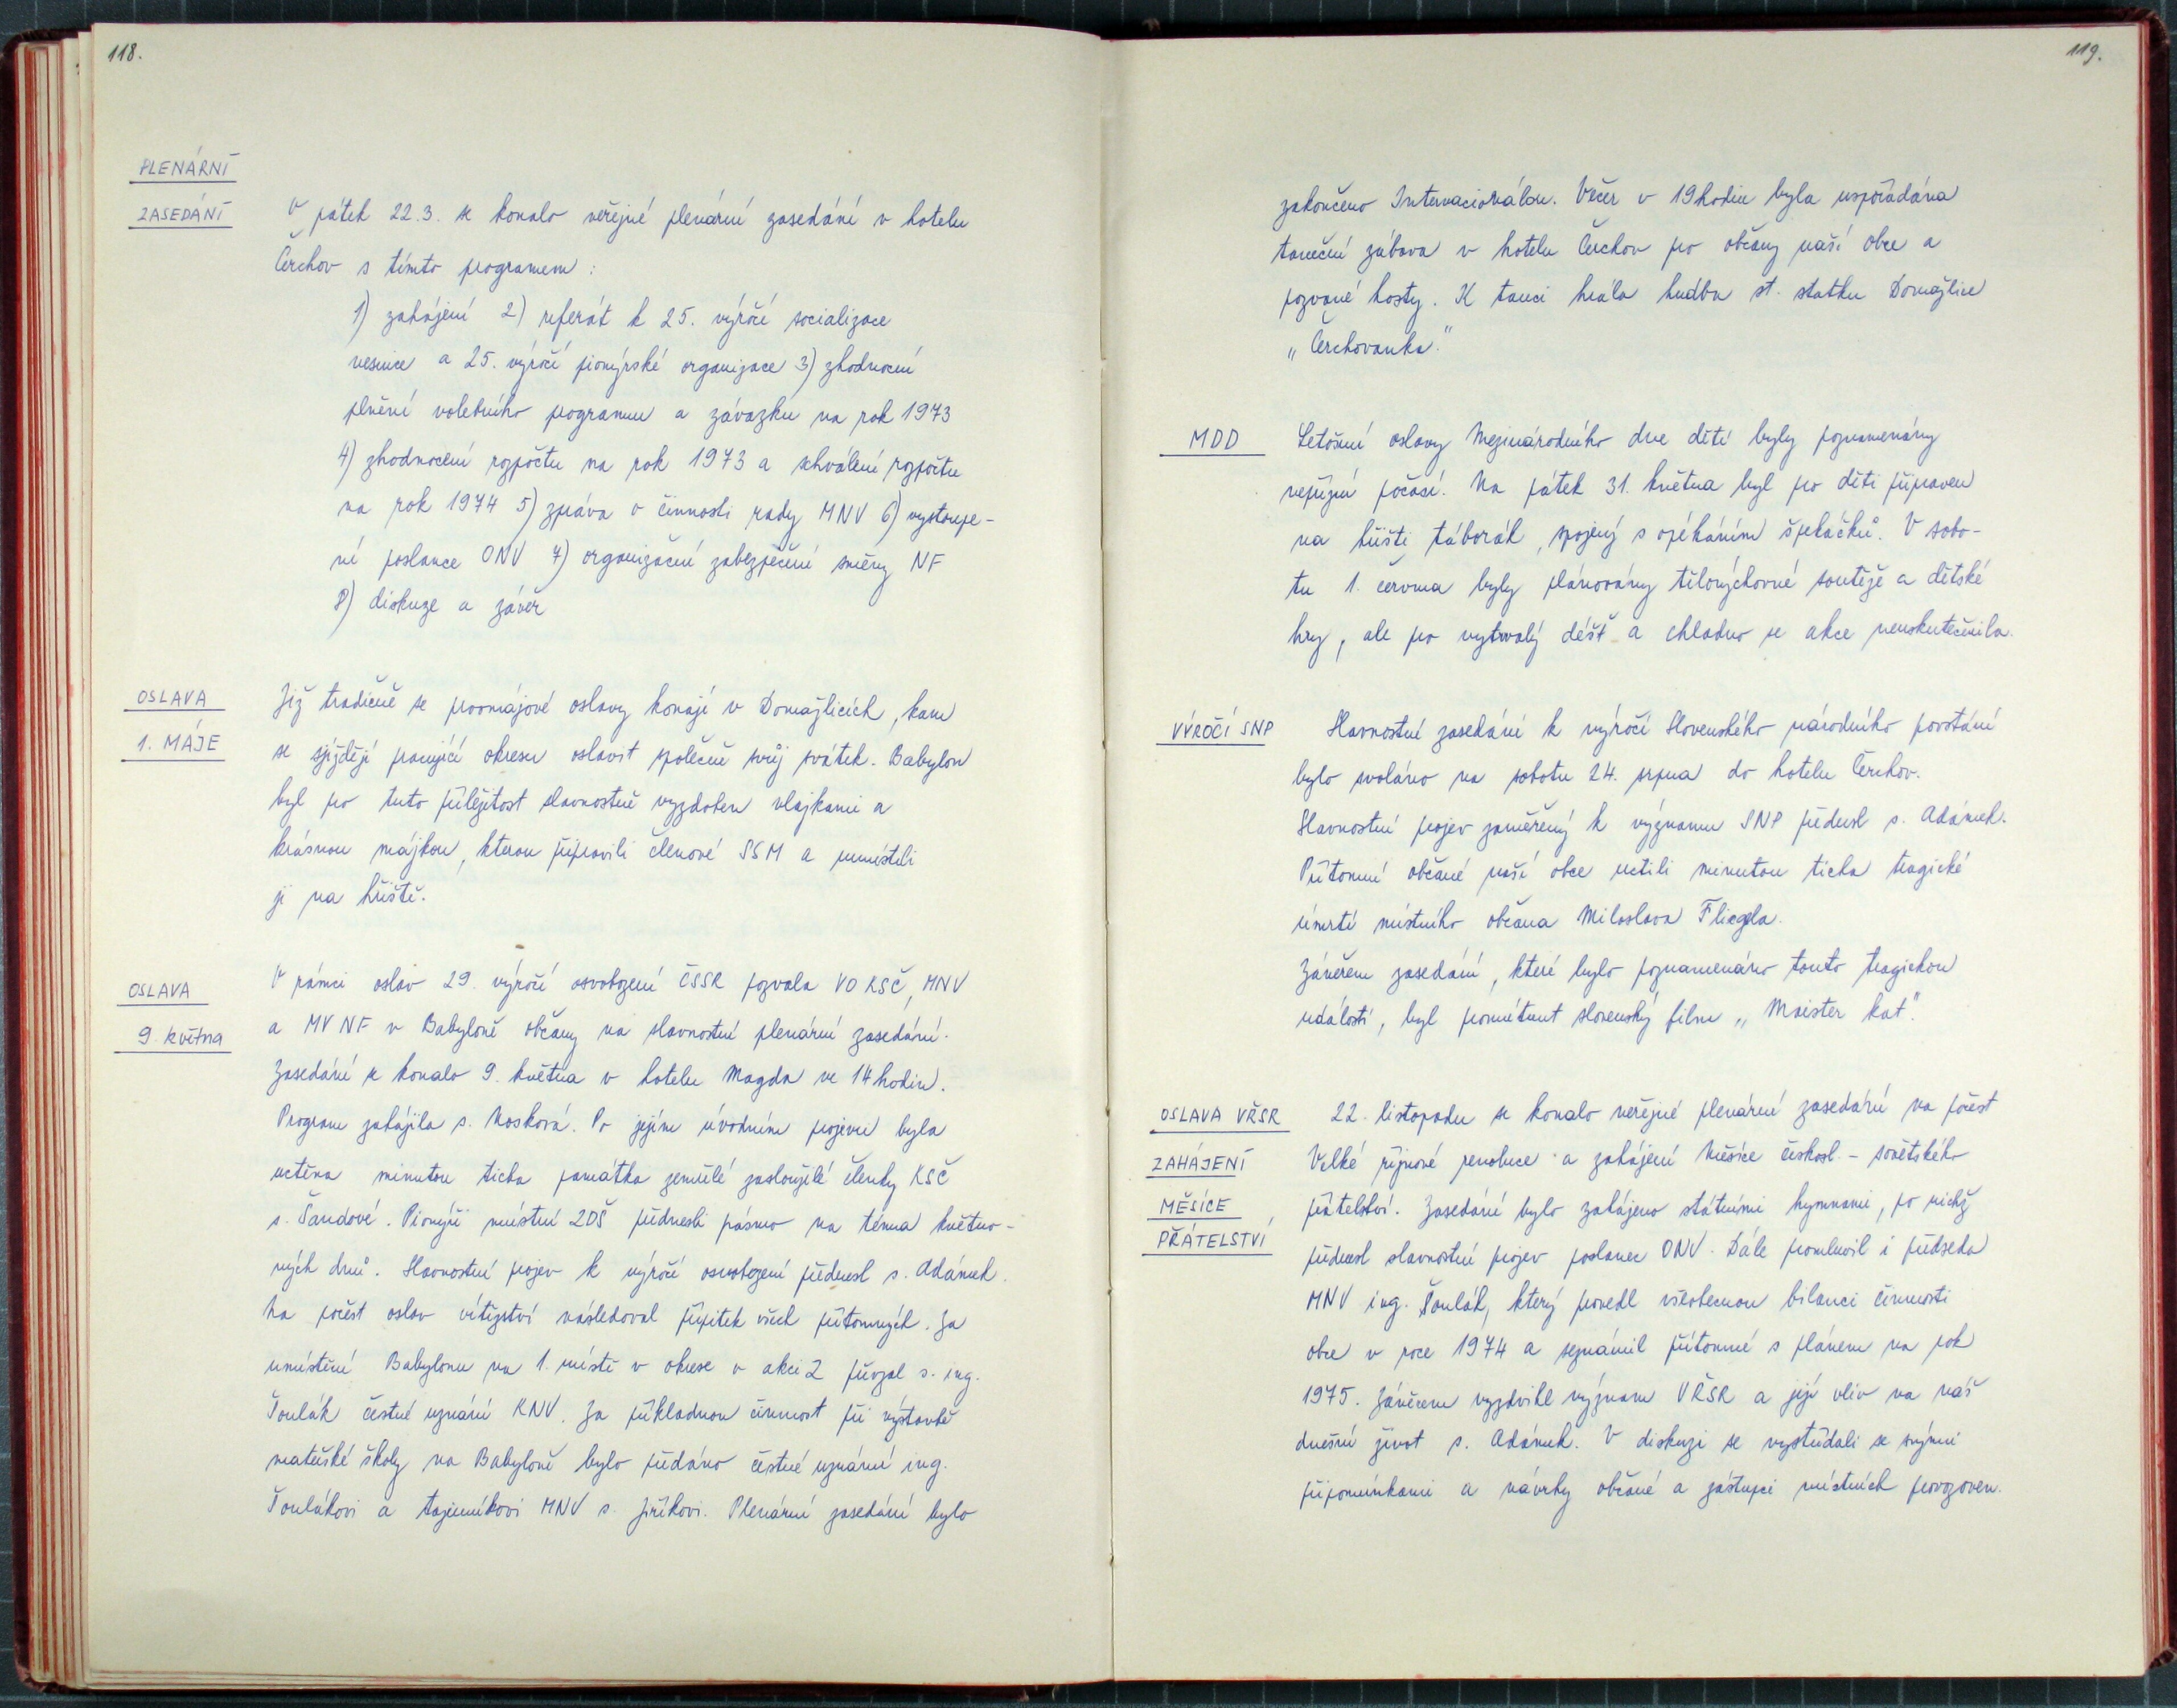 118.
PLENÁRNÍ
ZASEDÁNÍ
V pátek 22.3. se konalo veřejné plenární zasedání v hotelu
Čerchov s tímto programem :
1) zahájení 2) referát k 25. výročí socializace
vesnice a 25. výročí pionýrské organizace 3) zhodnocení
plnění volebního programu a závazků na rok 1973
4) zhodnocení rozpočtu na rok 1973 a schválení rozpočtu
na rok 1974 5) zpráva o činnosti rady MNV 6) vystoupe-
ní poslance ONV 7) organizační zabezpečení směny NF
8) diskuze a závěr
OSLAVA
1. MÁJE
Již tradičně se prvomájové oslavy konají v Domažlicích, kam
se sjíždějí pracující okresu oslavit společně svůj svátek. Babylon
byl pro tuto příležitost slavnostně vyzdoben vlajkami a
krásnou májkou, kterou připravili členové SSM a umístili
ji na hřiště.
OSLAVA
9. května
V rámci oslav 29. výročí osvobození ČSSR pozvala VO KSČ, MNV
a MV NF v Babyloně občany na slavnostní plenární zasedání.
Zasedání se konalo 9. května v hotelu Magda ve 14 hodin.
Program zahájila s. Nosková. Po jejím úvodním projevu byla
uctěna minutou ticha památka zemřelé zasloužilé členky KSČ
s. Šandové. Pionýři místní ZDŠ přednesli pásmo na téma květno-
vých dnů. Slavnostní projev k výročí osvobození přednesl s. Adámek.
Na počest oslav vítězství následoval přípitek všech přítomných. Za
umístění Babylonu na 1. místě v okrese v akci Z převzal s. ing.
Toulák čestné uznání KNV. Za příkladnou činnost při výstavbě
mateřské školy na Babyloně bylo předáno čestné uznání ing.
Toulákovi a tajemníkovi MNV s. Jiříkovi. Plenární zasedání bylo
119.
zakončeno Internacionálou. Večer v 19 hodin byla uspořádána
taneční zábava v hotelu Čerchov pro občany naší obce a
pozvané hosty. K tanci hrála hudba st. statku Domažlice
„ Čerchovanka."
MDD
Letošní oslavy Mezinárodního dne dětí byly poznamenány
nepřízní počasí. Na pátek 31. května byl pro děti připraven
na hřišti táborák, spojený s opékáním špekáčků. V sobo-
tu 1. června byly plánovány tělovýchovné soutěže a dětské
hry, ale pro vytrvalý déšť a chladno se akce neuskutečnila.
VÝROČÍ SNP
Slavnostní zasedání k výročí Slovenského národního povstání
bylo svoláno na sobotu 24. srpna do hotelu Čerchov.
Slavnostní projev zaměřený k významu SNP přednesl s. Adámek.
Přítomní občané naší obce uctili minutou ticha tragické
úmrtí místního občana Miloslava Fliegla.
Závěrem zasedání, které bylo poznamenáno touto tragickou
událostí, byl promítnut slovenský film „ Majster kat".
OSLAVA VŘSR
ZAHÁJENÍ
MĚSÍCE
PŘÁTELSTVÍ
22. listopadu se konalo veřejné plenární zasedání na počest
Velké říjnové revoluce a zahájení Měsíce českosl. - sovětského
přátelství. Zasedání bylo zahájeno státními hymnami, po nichž
přednesl slavnostní projev poslanec ONV. Dále promluvil i předseda
MNV ing. Toulák, který provedl všeobecnou bilanci činnosti
obce v roce 1974 a seznámil přítomné s plánem na rok
1975. Závěrem vyzdvihl význam VŘSR a její vliv na náš
dnešní život s. Adámek. V diskuzi se vystřídali se svými
připomínkami a návrhy občané a zástupci místních provozoven.